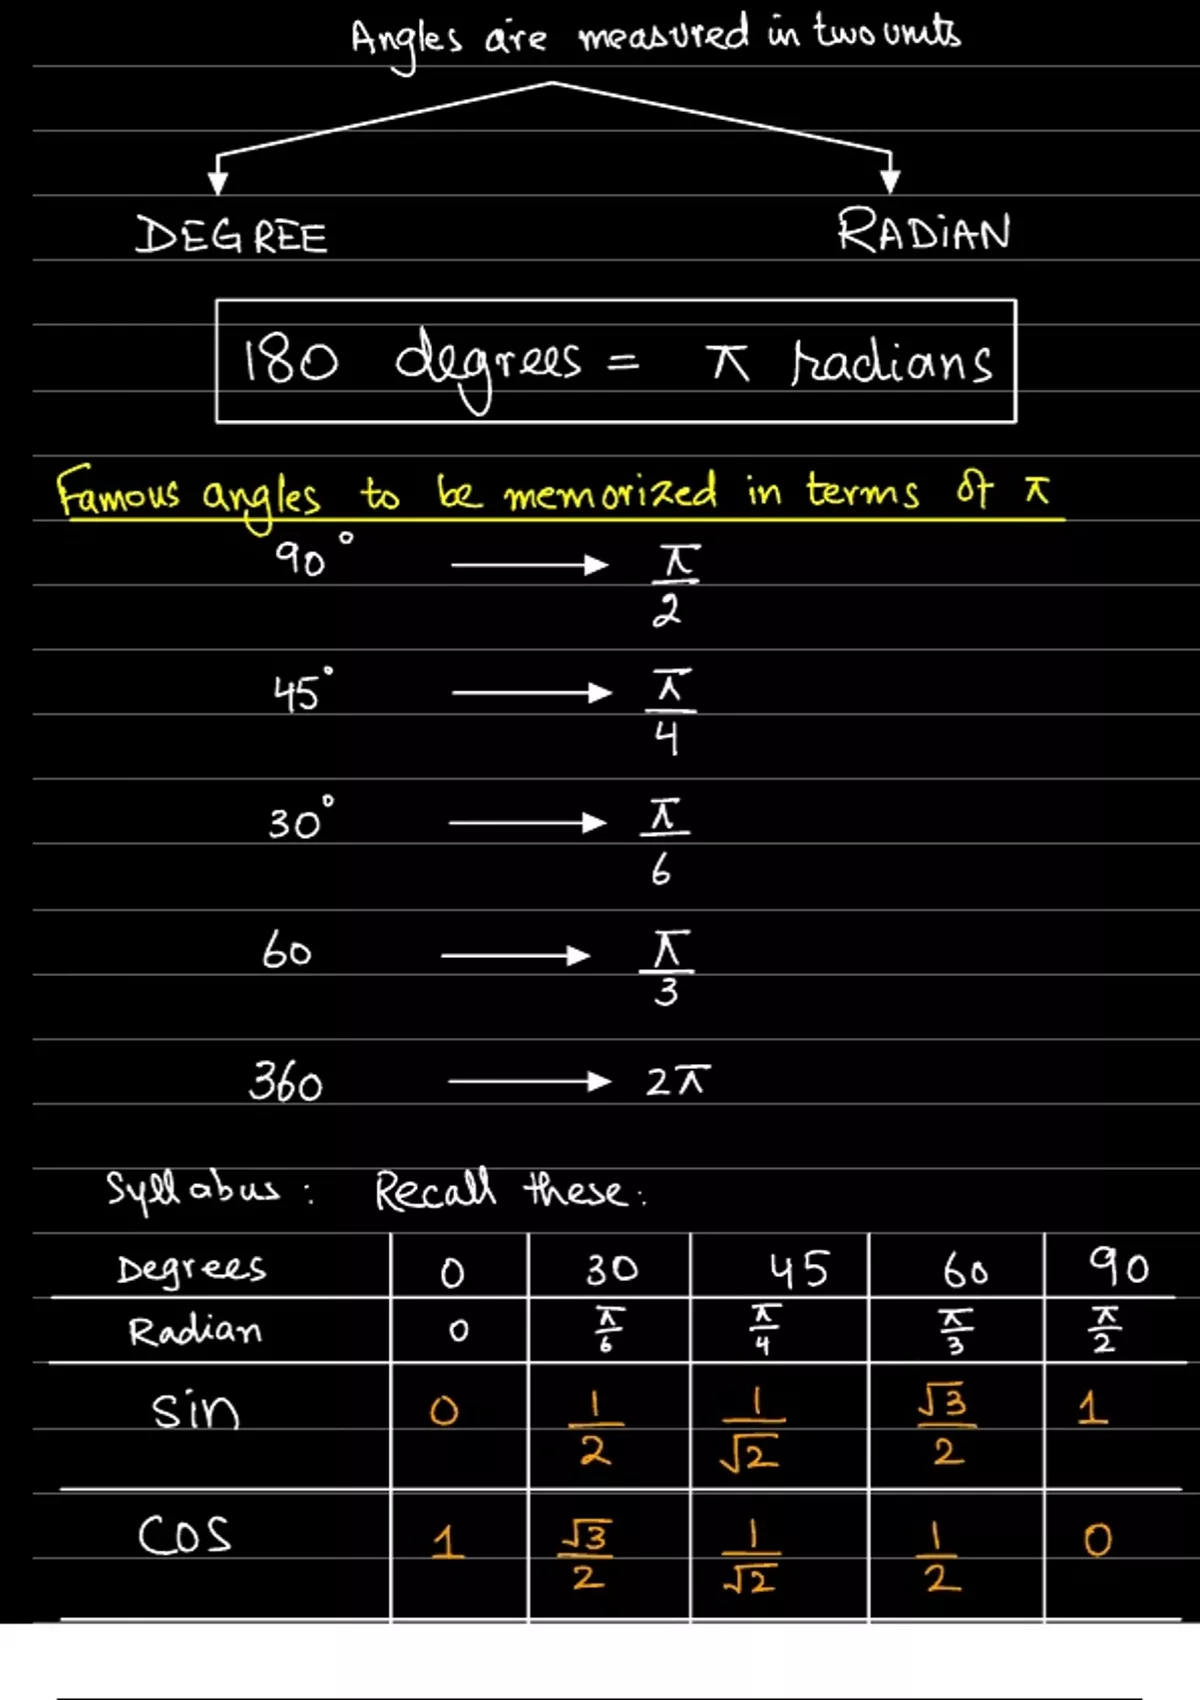 Angles are measured in two units
DEGREE RADIAN
180 degrees = π radians
Famous angles to be memorized in terms of π
90° → π/2
45° → π/4
30° → π/6
60 → π/3
360 → 2π
Syllabus: Recall these:
Degrees 0 30 45 60 90
Radian 0 π/6 π/4 π/3 π/2
sin 0 1/2 1/√2 √3/2 1
cos 1 √3/2 1/√2 1/2 0